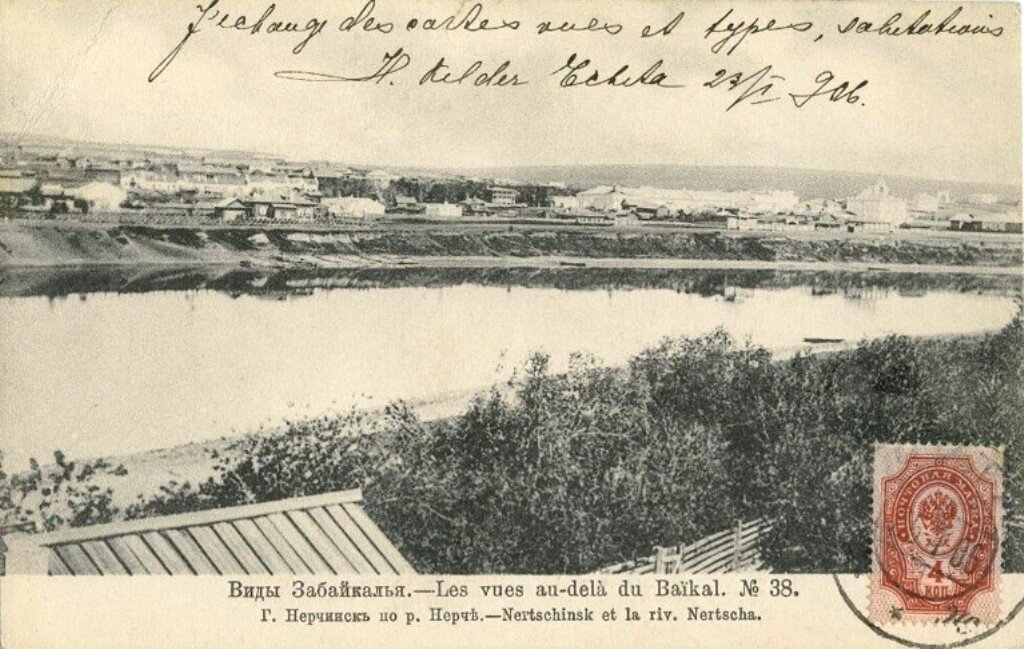 J'echange des cartes vues et types, salutations
H. Kelder Tchita 23/I 906.
ПОЧТОВАЯ МАРКА
4
КОП
Виды Забайкалья.—Les vues au-delà du Baïkal. № 38.
Г. Нерчинскъ по р. Нерчѣ.—Nertschinsk et la riv. Nertscha.